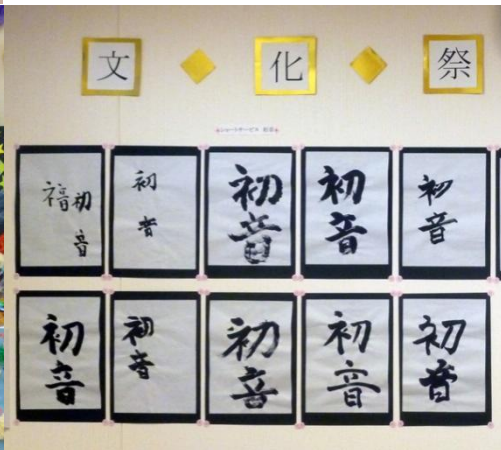 文 化 祭
初音
初音
初音
初音
初音
初音
初音
初音
初音
初音